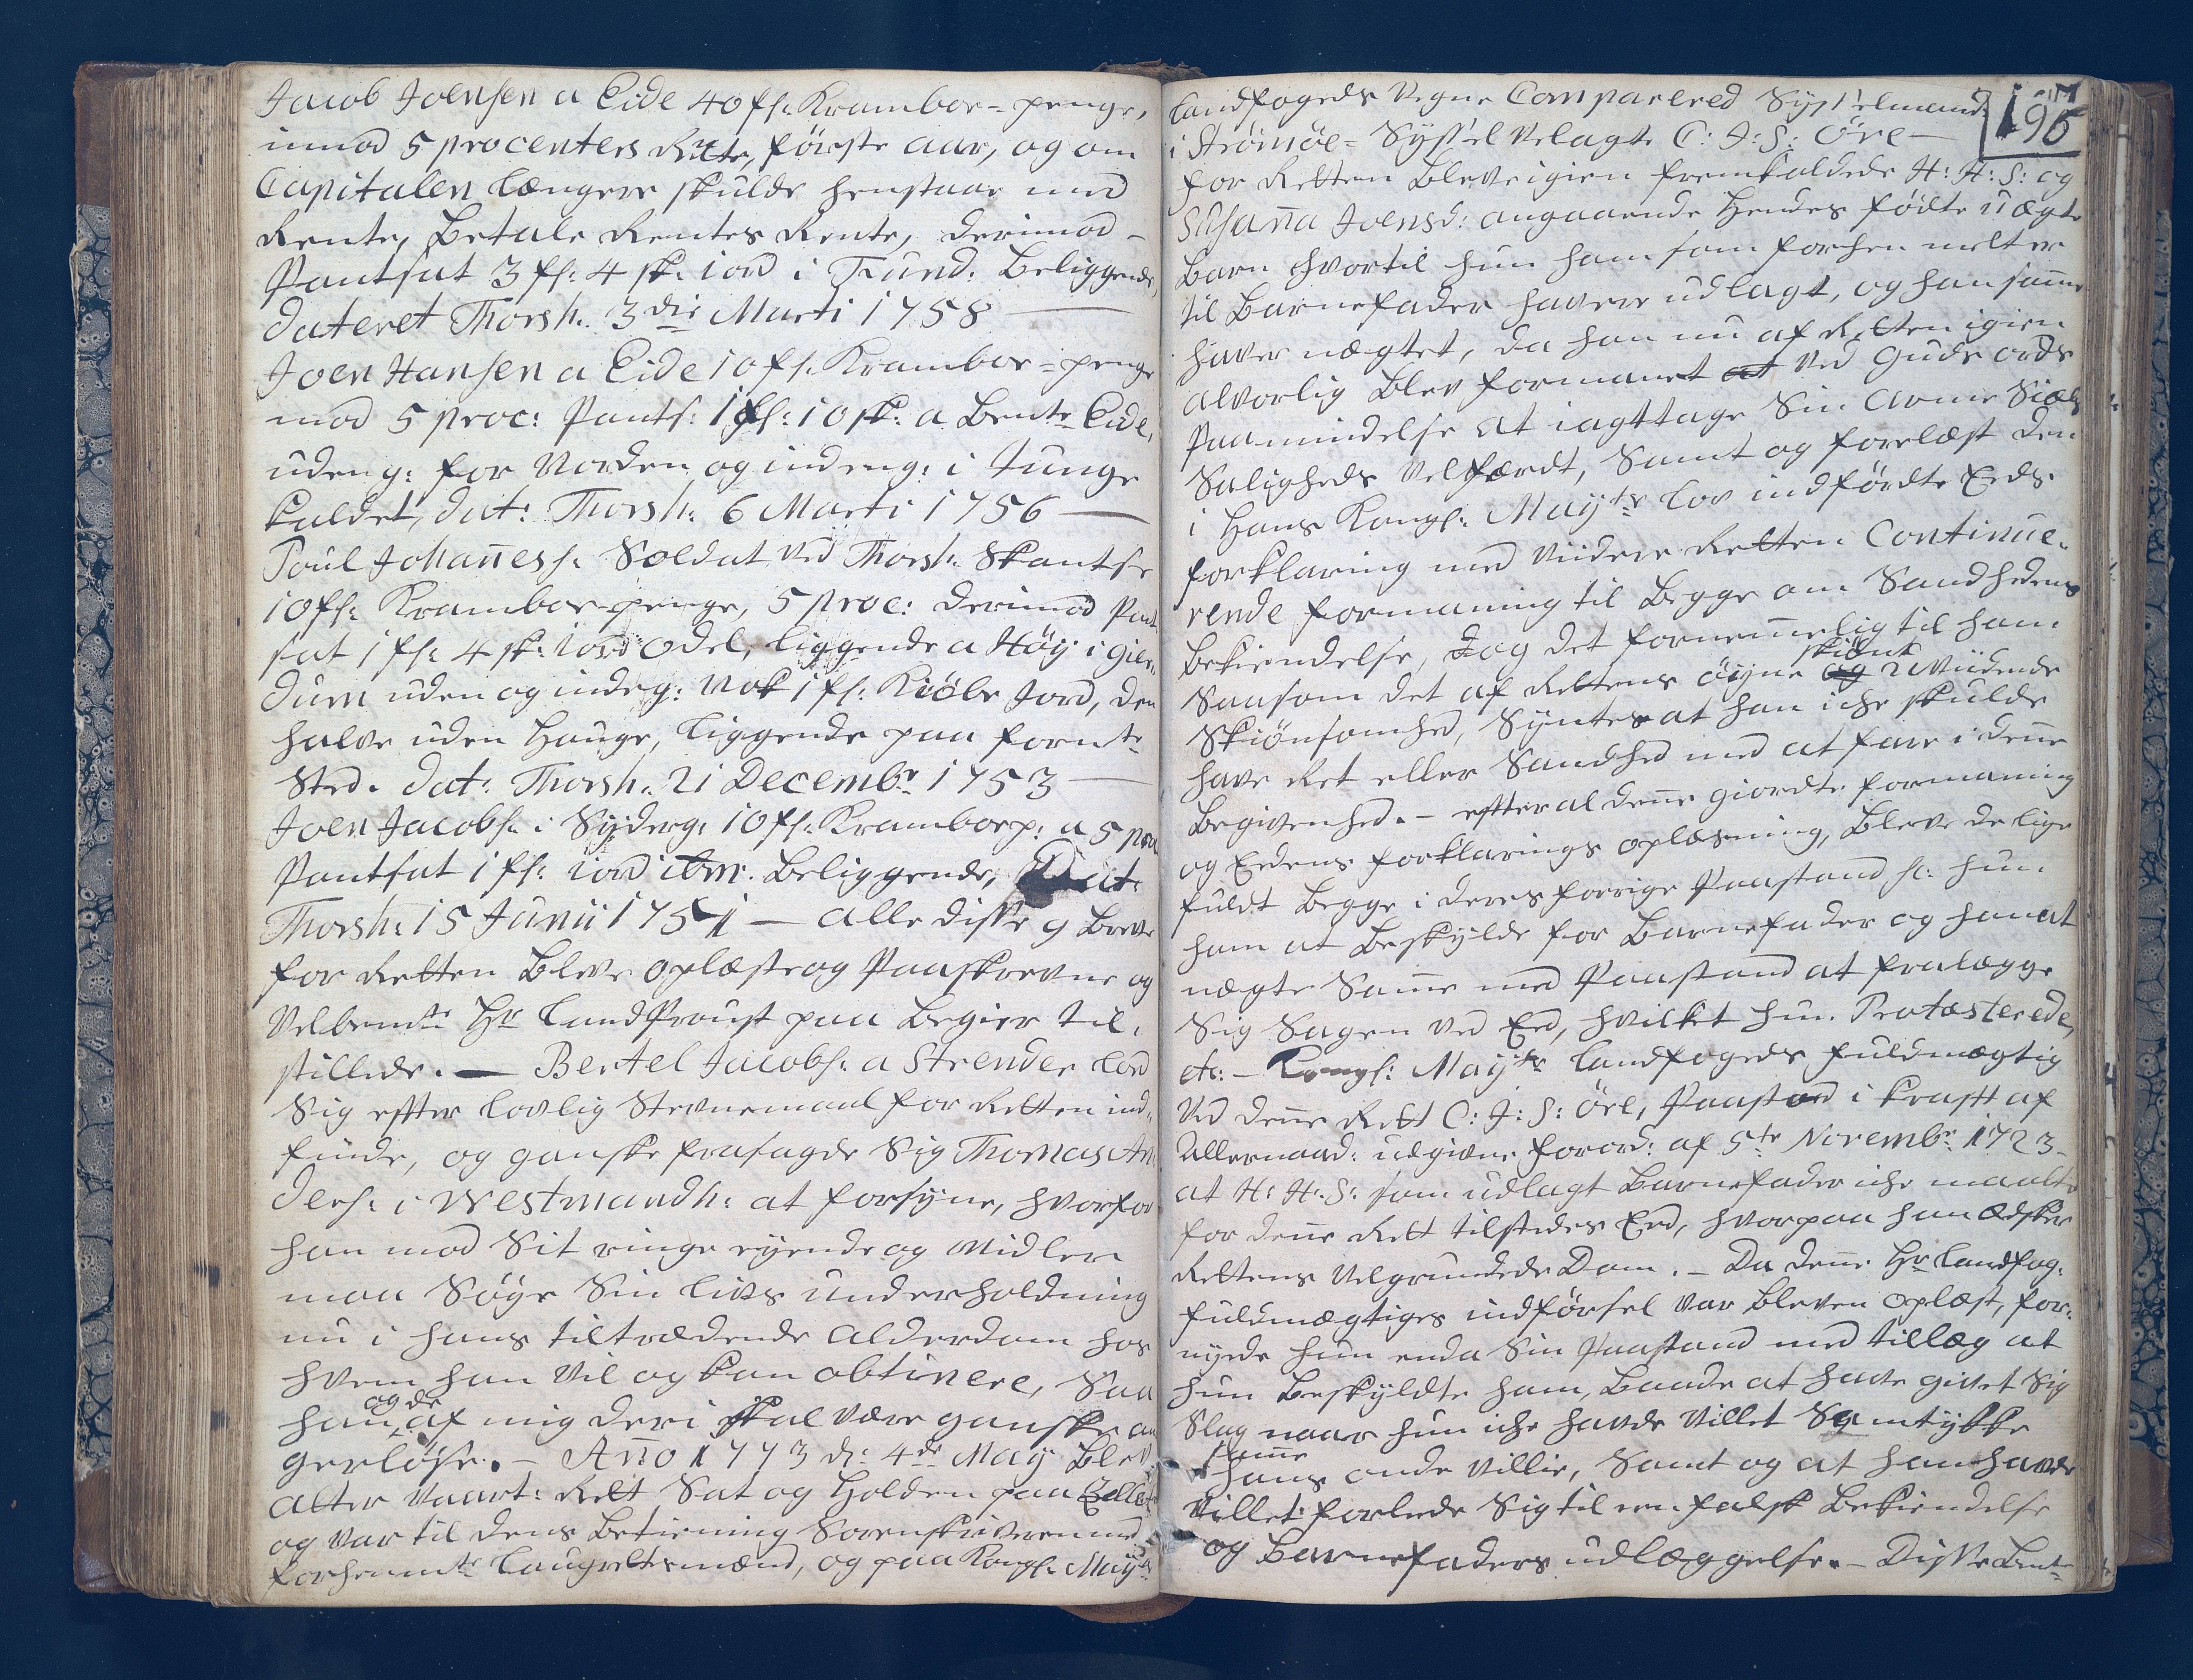 Jacob Joensen a Eide 40 fs: Krambor=penge,
imod 5 procenters Rente, förste aar, og om
Capitalen længere skulde henstaae med
Rente, betale Rentes Rente, derimod
Pantsat 3 fs: 4 sk: iord i Fund: beliggende,
dateret Thorsh: 3die Marti 1758
Joen Hansen a Eide 10 fs. Krambor=penge
mod 5 proc: Pants: 1 fs: 10 sk: a bente Eide,
udeng: for Norden og indeng: i Tunge
kaldet, dat: Thorsh: 6 Marti 1756
Poul Johannes s. Soldat ved Thorsh: Skantse
10 fs: Krambor-penge, 5 proc: derimod Pant
sat 1 fs: 4 sk: iord Odel, liggende a Höy i Gien-
dum uden og indeg: Nok 1 fs: Kiöbe Jord, den
halve uden Hauge, liggende paa fornte
Sted. dat: Thorsh: 21 Decembr 1753
Joen Jacobs: i Syderg: 10 fs: Kramborp: a 5 pro
Pantsat 1 fs: iord ibm: beliggende, Dat:
Thorsh: 15 Junii 1751 — alle disse 9 breve
for Retten bleve oplæste og Paaskrevne og
Velbemte Hr LandProust paa begier til-
stillede. — Bertel Jacobs: a Strender lod
Sig efter lovlig Stevnemaal for Retten ind-
finde, og ganske frasagde Sig Thomas An
ders: i Westmandh: at forsyne, hvorfor
han mod Sit ringe eyende og Midler
maa Söge Sin livs underholdning
nu i hans tiltrædende Alderdom hos
hvem han vil og kan obtinere, Saa
han og de af mig deri skal være ganske an
gerlöse. — Ano 1773 d: 4de May blev
atter Vaart: Rett Sat og holden paa
og var til dens betiening Sorenskriveren med
forhenmte laugrettesmænd, og paa Kongl: Mayts
195
landfogeds Vegne Comparered Sysselmand:
i Strömöe= Syssel Velagte C: J: S: Öre —
for Retten bleve igien fremkaldede H: H: S: og
Susanna Joensd: angaaende hendes födte uægte
barn hvortil hun ham som forhen melt er
til Barnefader haver udlagt, og han samme
haver nægtet, da han nu af Retten igien
alvorlig blev formanet at ved Guds ords
Paamindelse at iagttage Sin arme Siæls
Saligheds Velfærdt, Samt og forelæst den
i Hans Kongl: Mayts lov indfördte Eds
forklaring med videre Retten Continue-
rende formaning til begge om Sandhedens
bekiendelse, dog det fornemelig til ham
Saasom det af Rettens öyne og skiönt uviidende
Skiönsomhed, Syntes at han iche skulde
have Ret eller Sandhed med at fare i dene
begivenhed. — efter al dene giordte formaning
og Eedens forklarings oplæsning, bleve de lige
fuldt begge i deres forrige Paastand sc: hun
ham at beskylde for Barnefader og han at
nægte Same med Paastand at fralægge
Sig Sagen ved Eed, hvilket hun Protæsterede,
etc: — Kongl: Mayts landfogeds fuldmægtig
ved dene Rett C: J: S: Öre, Paastod i kraft af
Allernaad: udgivne forord: af 5te Novembr 1723
at H: H: S: som udlagt Barnefader iche maatte
for dene Rett tilstedes Eed, hvorpaa han ædsker
Rettens velgrundede Dom. — Da dene Hr landfog:
fuldmægtiges indförsel var bleven oplæst, for-
nyede hun enda Sin Paastand med tillæg at
hun beskyldte ham, baade at have givet Sig
Slag naar hun iche havde villet Samtykke
hans onde villie, Samt og at han havde
villet forlede Sig til een falsk bekiendelse
og Barnefaders udlæggelse. — Disse bemte